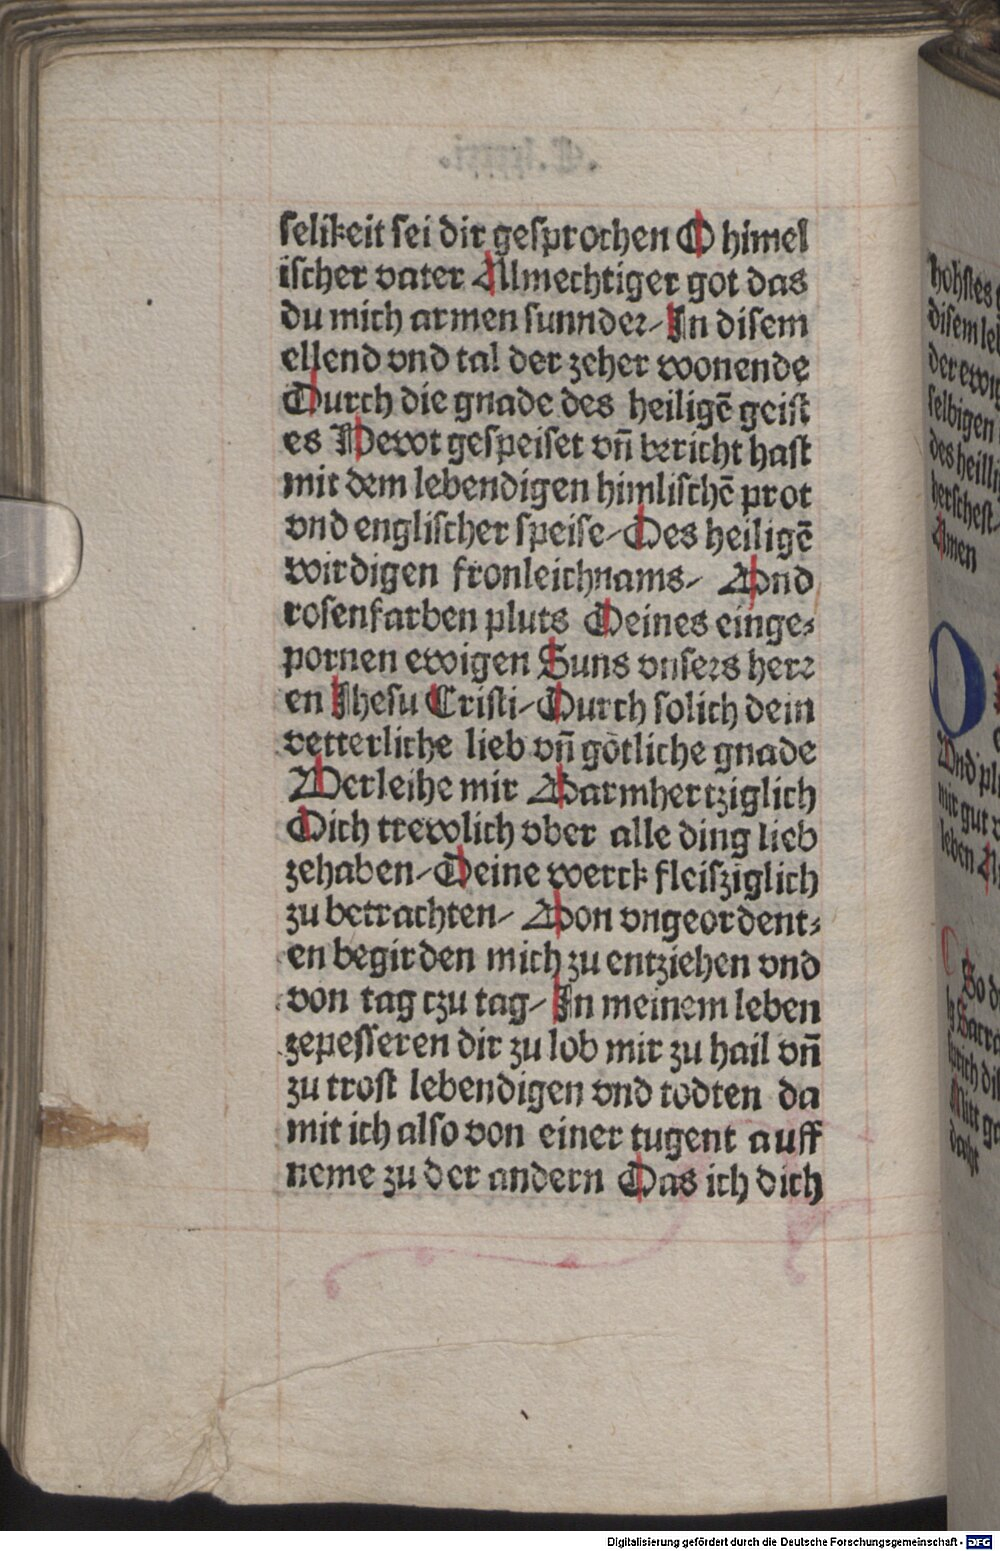 selikeit sei dir gesprochen O himel
ischer vater Allmechtiger got das
du mich armen sunnder/ In disem
ellend vnd tal der zeher wonende
Durch die gnade des heiligē geist
es Newt gespeiset vn̄ bericht hast
mit dem lebendigen himlischē prot
vnd englischer speise/ Des heiligē
wirdigen fronleichnams/ Vnd
rosenfarben pluts Deines einge⸗
pornen ewigen Suns vnsers herr
en Jhesu Cristi/ Durch solich dein
vetterliche lieb vn̄ götliche gnade
Verleihe mir Barmhertziglich
Dich trewlich vber alle ding lieb
zehaben/ Deine werck fleisziglich
zu betrachten/ Von vngeordent⸗
en begirden mich zu entziehen vnd
von tag tzu tag/ In meinem leben
zepesseren dir zu lob mir zu hail vn̄
zu trost lebendigen vnd todten da
mit ich also von einer tugent auff
neme zu der andern Das ich dich
hohstes
disem le
der ewi
selbigen
des heili
herschest/
Amen
Vnd pl
mir gut
leben
So d
sprich di
Digitalisierung gefördert durch die Deutsche Forschungsgemeinschaft - DFG